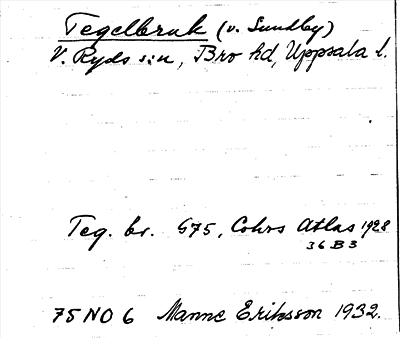 Tegelbruk (v. Sundby)
V. Ryds sn, Bro hd, Uppsala l.
Teg. br. G75, Cohrs Atlas 1928
36 B 3
75 NO 6 Manne Eriksson 1932.